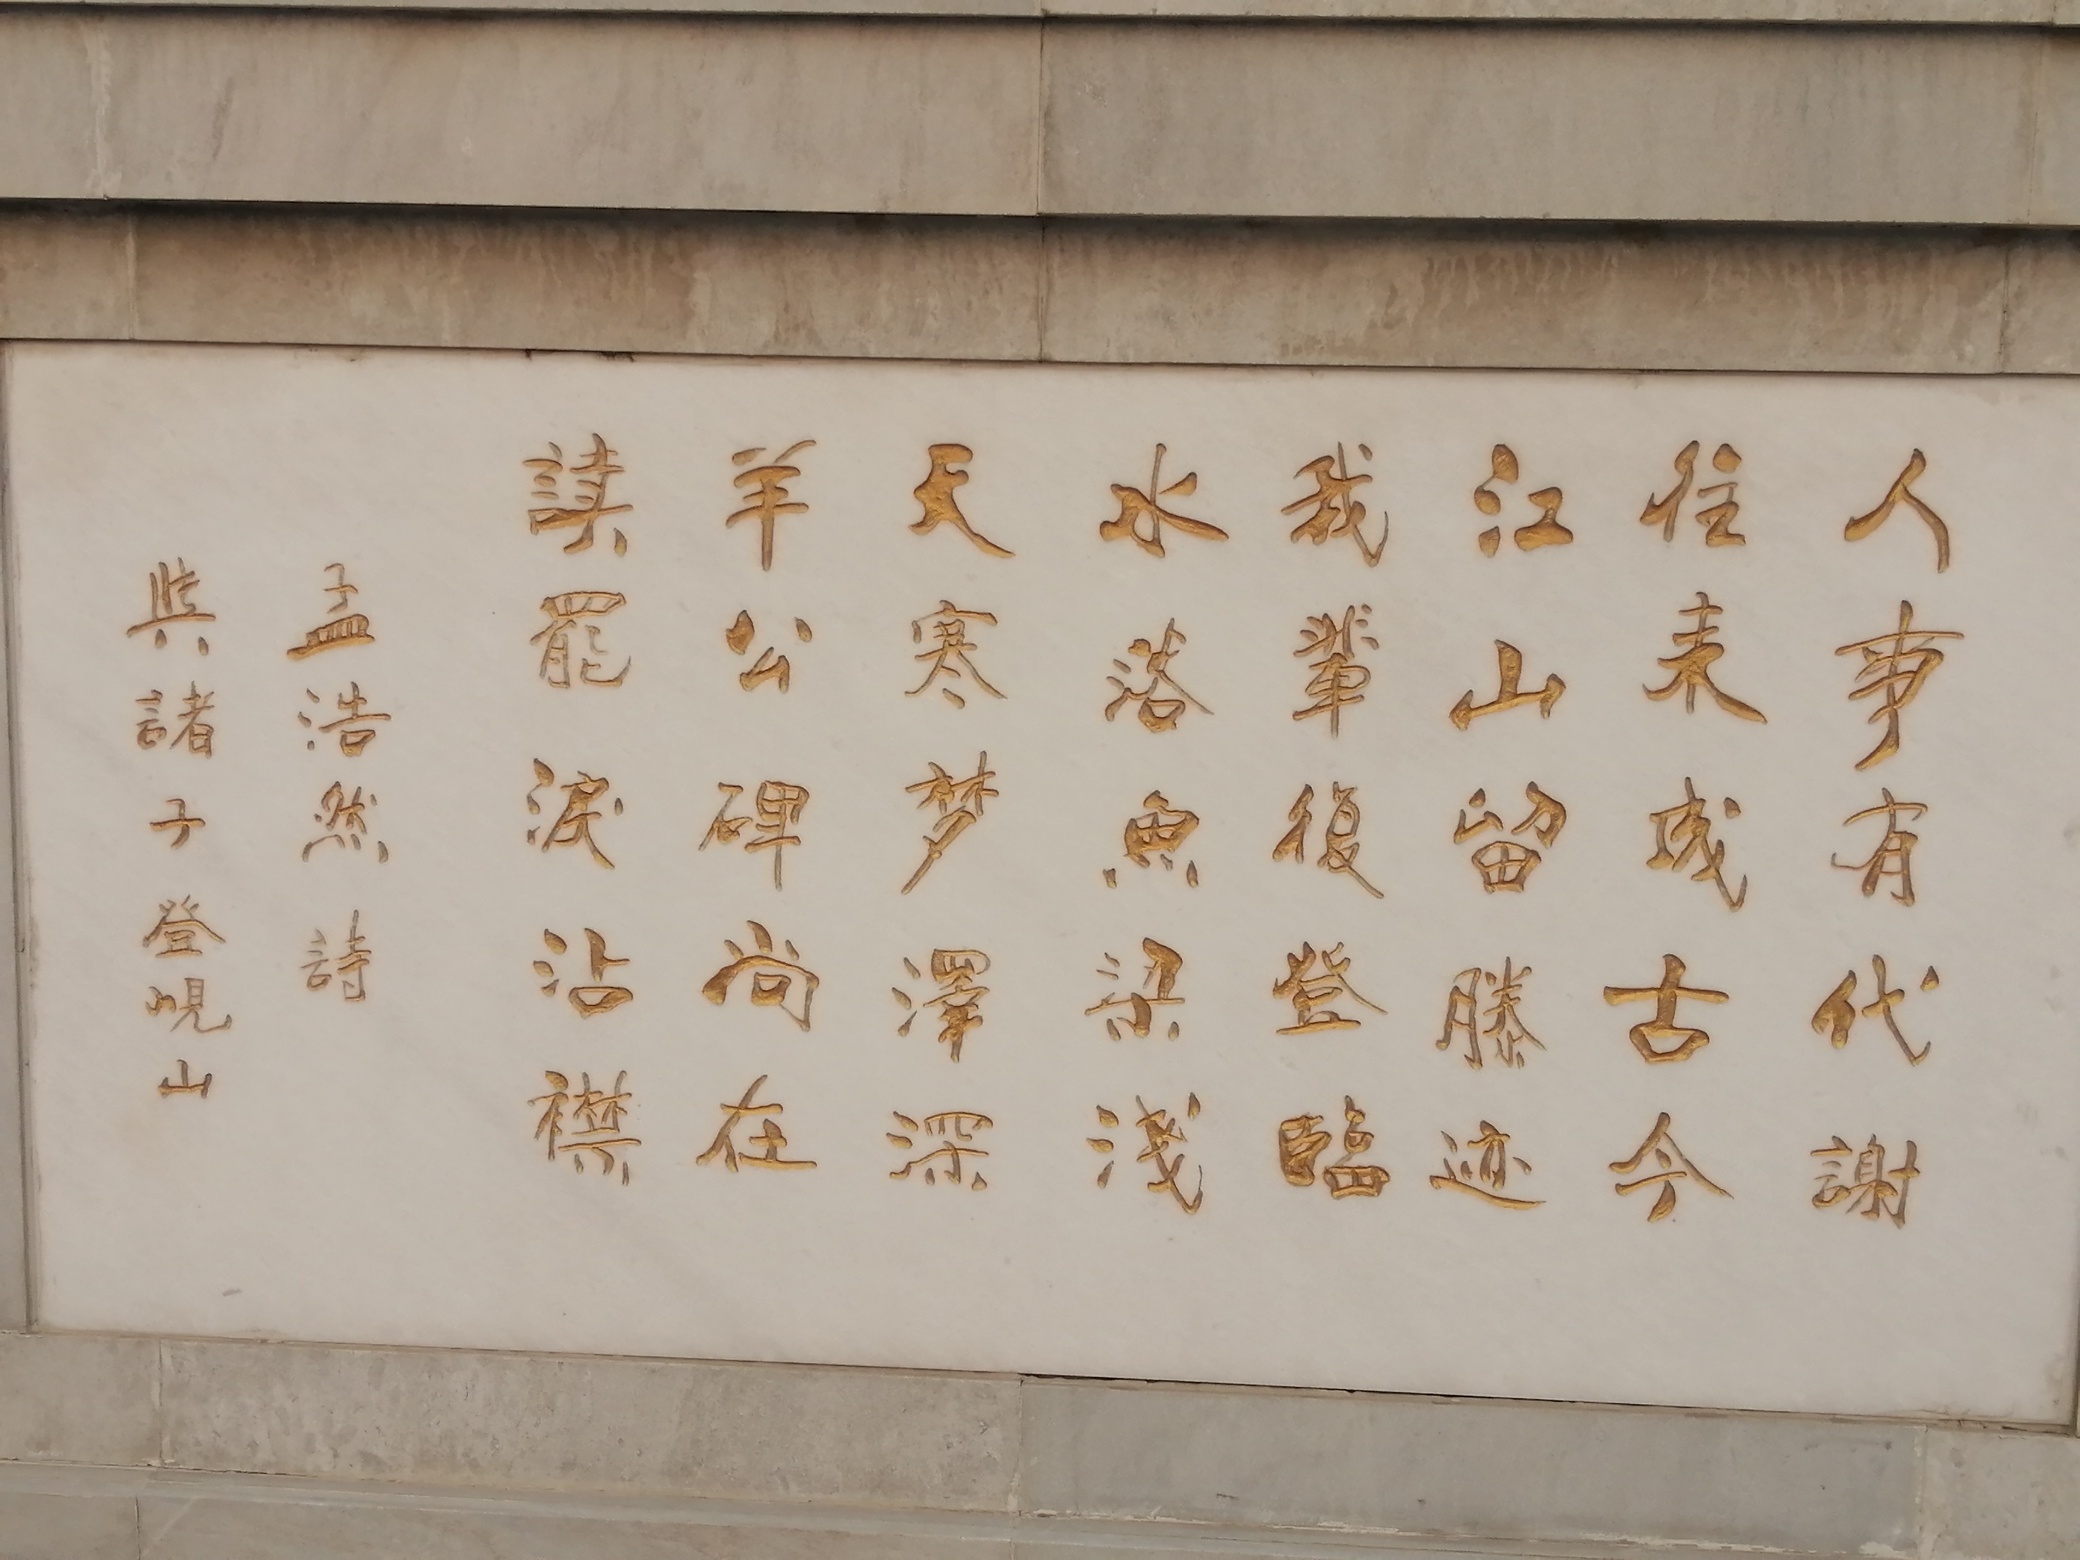 人事有代謝
往来成古今
江山留勝迹
我輩復登臨
水落魚梁淺
天寒梦澤深
羊公碑尚在
讀罷淚沾襟
孟浩然詩
與諸子登峴山